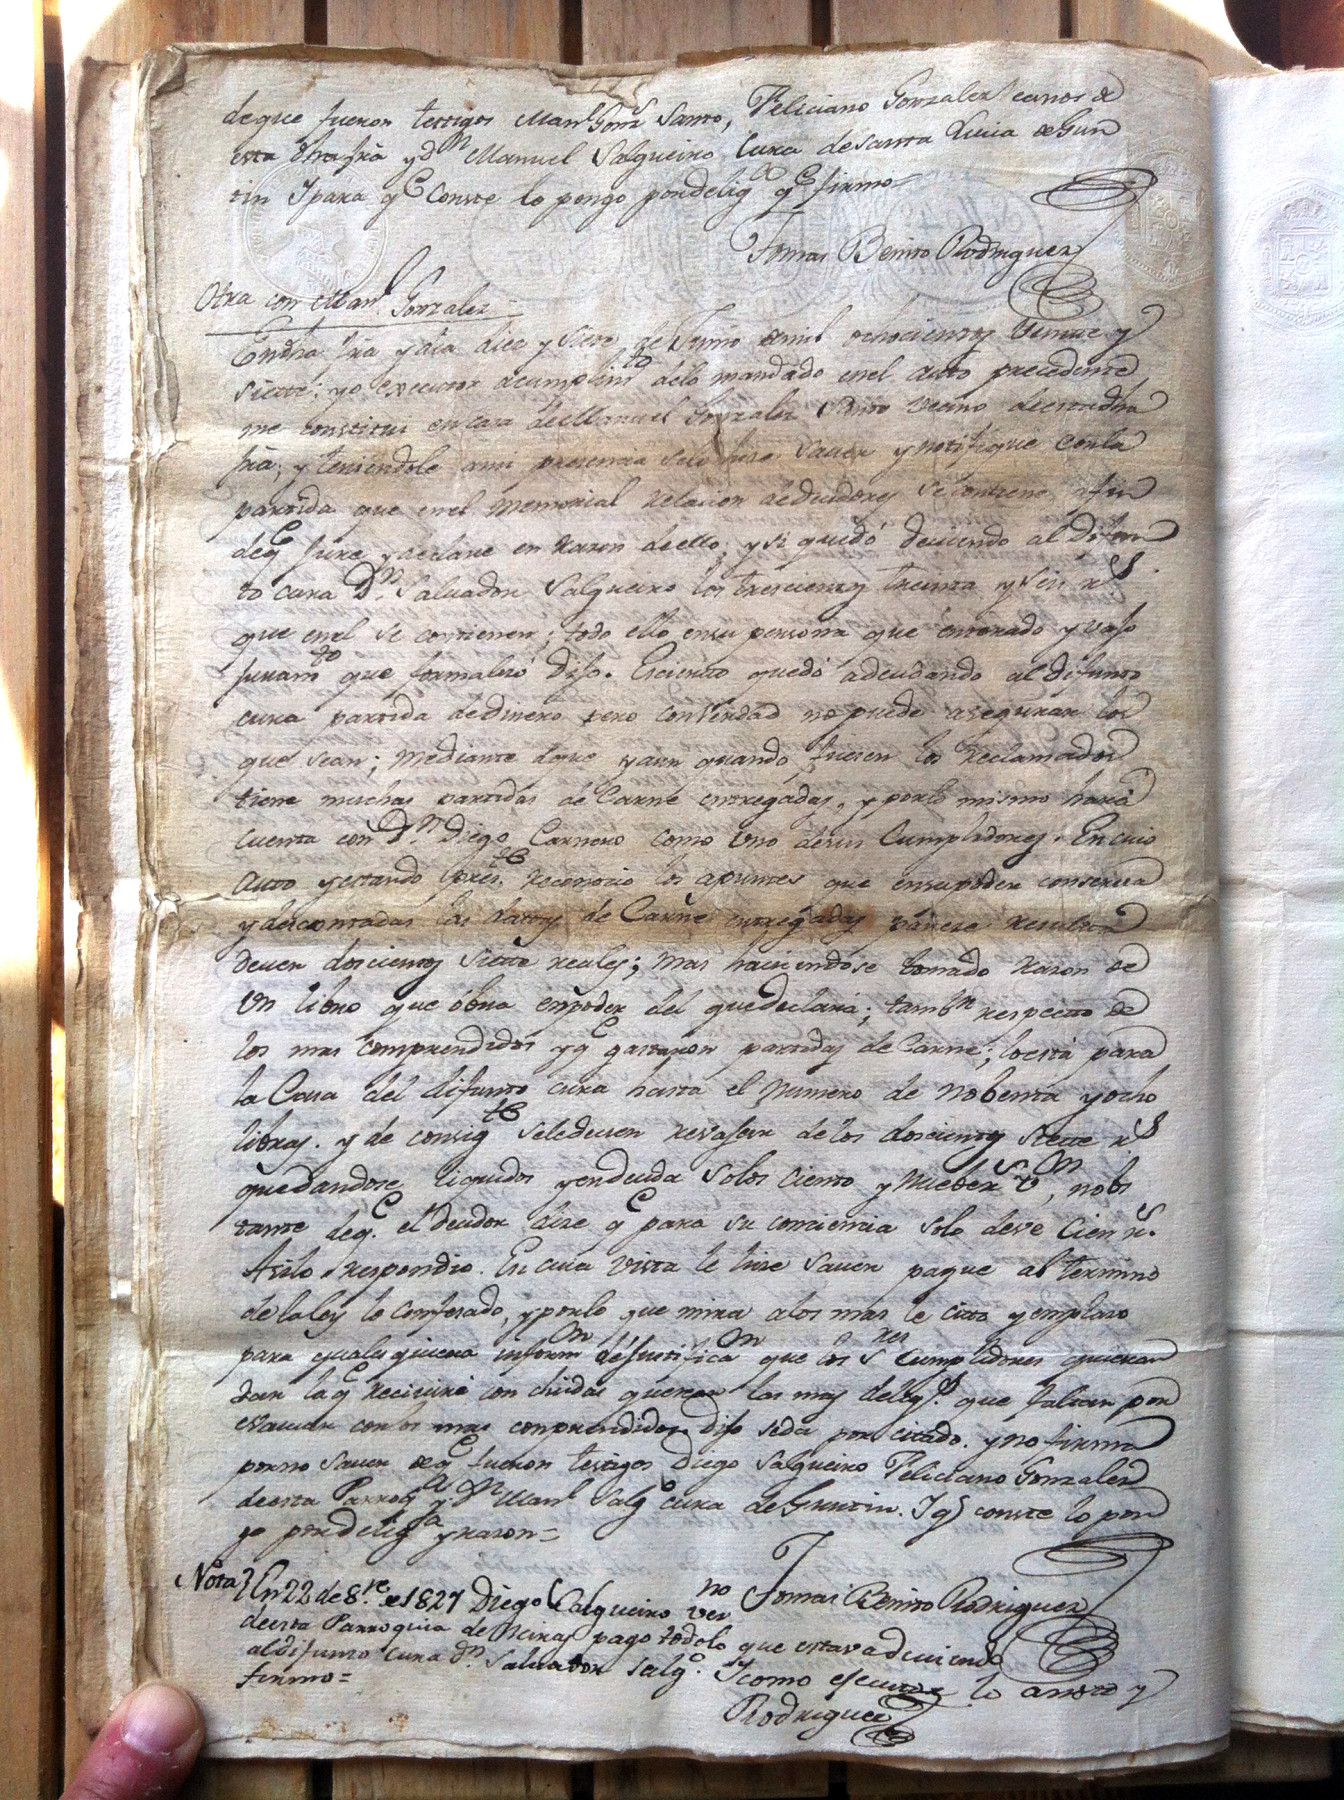 de que fueron testigos Man.l Gonz.z Santo, Feliciano Gonzalez vecinos de
esta dha fra y D.n Manuel Salgueiro Cura de Santa Lucia de Gun
tin Y para q.e Conste lo pongo por delig.a q.e firmo
Tomas Benito Rodriguez
Otra con Man.l Gonzalez
En dha fra y dia diez y siete de Junio de mil ochocientos veinte y
siette: yo executor a cumplim.to delo mandado en el auto precedente
me constitui en casa de Manuel Gonzalez Santo vecino de esta dha
fra; y teniendole a mi presencia se lo hise saver y notifique con la
partida que en el Memorial relacion de deudores se contiene a fin
deq.e jure y declare en razon de ello; y si quedó deviendo al Difun
to cura D.n Salvador Salgueiro los trescientos treinta y seis r.s
que en el se contienen; todo ello en su persona que enterado y vajo
juram.to que formalizó Dijo. Es cierto quedó adeudando al Difunto
cura partida de dinero pero con verdad no puede asegurar los
que sean; mediante deque y aun quando fuesen los reclamados
tiene muchas partidas de Carne entregadas, y por lo mismo hará
cuenta con D.n Diego Carnero como uno de sus Cumplidores. En cuio
auto y estando pres.te reconocio los apuntes que en su poder conserva
y descontadas las dattas de Carne entregadas parece resultan
deven doscientos siette reales; mas haciendose tomado razon de
un libro que óbra en poder del que declara; tamb.n respecto de
los mas comprendidos y q.e gastaron partidas de Carne; lo está para
la Casa del difunto cura hasta el numero de nobenta y ocho
libras. y de consig.te se le deven revajar de los doscientos siette r.s
quedandose liquidos y en deuda solos ciento y nueber v.n, nobs
tante deq.e el deudor dize q.e para su conciencia solo deve cien r.s
Asilo respondio. En cuia vista le hise saver pague al termino
de la ley lo confesado, y por lo que mira a los mas le cito y emplazo
para qualesquiera inform.n de justifica.n que los S.res Cumplidores quieran
dar la q.e recivire con dhas que sean las mas delig.s que faltan por
evacuar con los mas conprendidos dijo se da por citado. y no firma
por no saver de q.e fueron testigos Diego Salgueiro Feliciano Gonzalez
de esta Parroq.a y D.n Man.l Salg.o cura de Guntin. Y q.e conste lo pon
go por delig.a y razon=
Tomas Benito Rodriguez
Nota} En 22 de 8.re de 1827 Diego Salgueiro no ver
de esta Parroquia de Neiras pago todo lo que estava deviendo
al difunto Cura D.n Salvador Salg.o Y como ejecutor lo anoto y
firmo=
Rodriguez